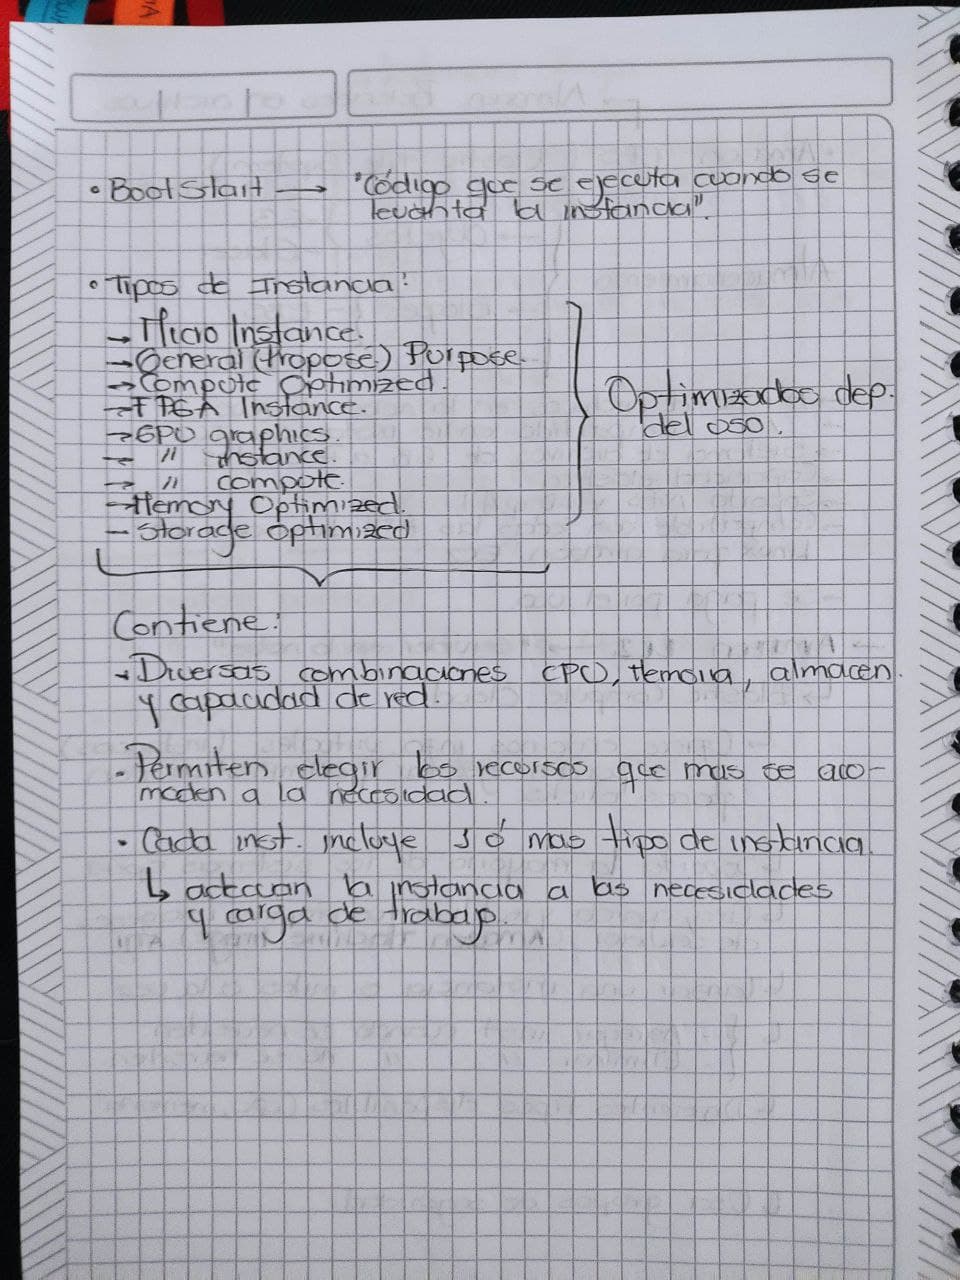 • BootStart → "Código que se ejecuta cuando se
levanta la instancia".
• Tipos de Instancia:
→ Micro Instance.
→ General (Propose) Purpose.
→ Compute Optimized.
→ FPGA Instance.
→ GPU graphics.
→ " instance.
→ " compute.
→ Memory Optimized.
– Storage Optimized
Optimizados dep.
del uso.
Contiene:
→ Diversas combinaciones CPU, Memoria, almacen.
y capacidad de red.
• Permiten elegir los recursos que mas se aco-
moden a la necesidad.
• Cada inst. incluye 1 ó mas tipo de instancia.
↳ adecuan la instancia a las necesidades
y carga de trabajo.